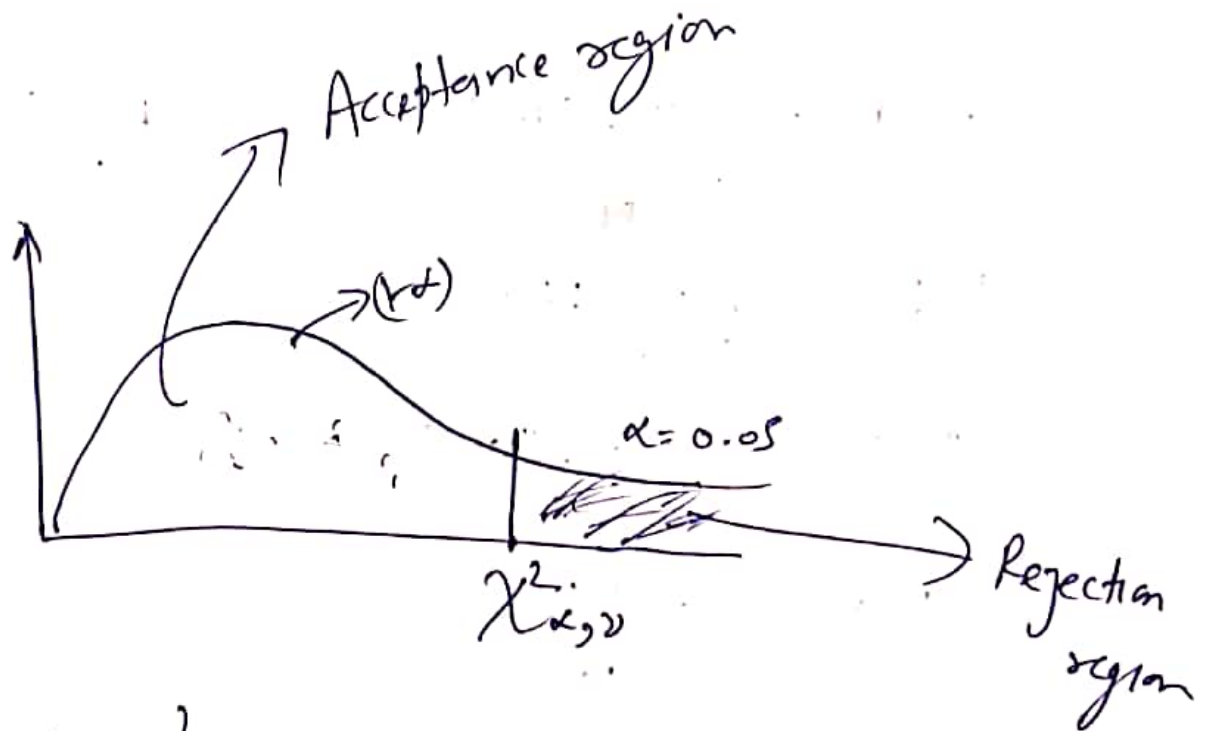 Acceptance region
(1-α)
α = 0.05
χ²α,ν
Rejection
region